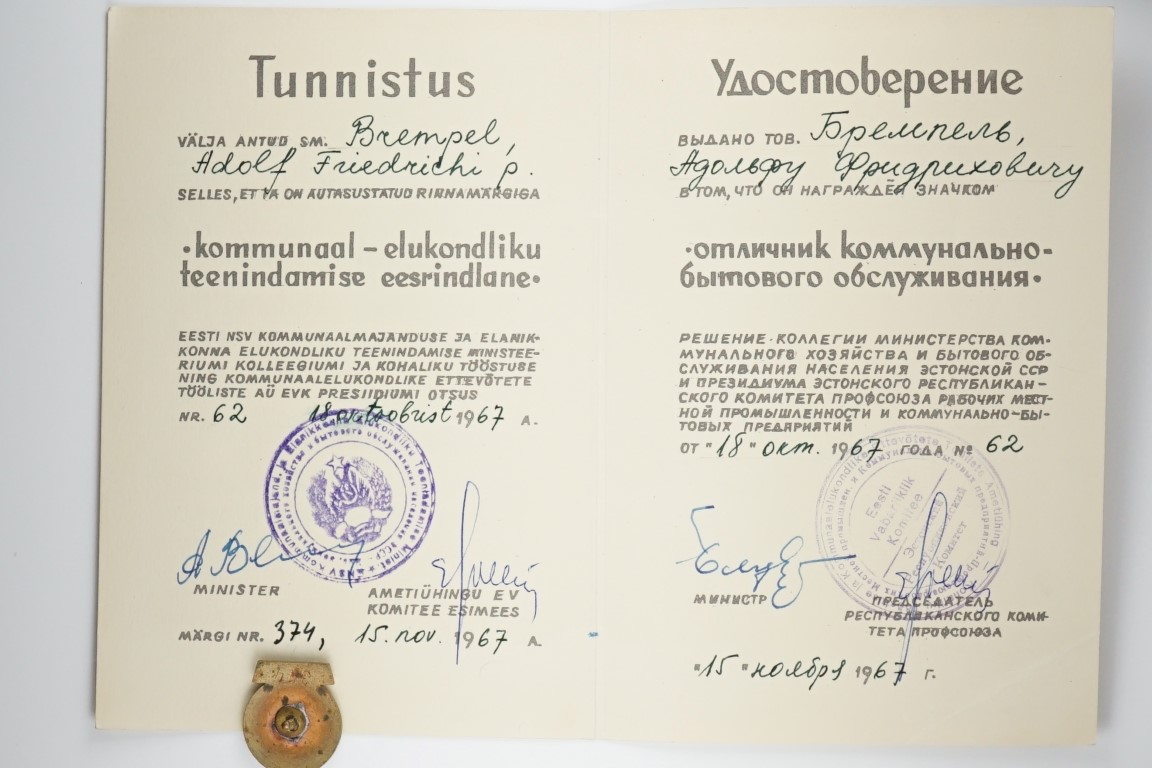 Tunnistus
VÄLJA ANTUD SM. Brempel,
Adolf Friedrichi p.
SELLES, ET TA ON AUTASUSTATUD RINNAMÄRGIGA
•kommunaal – elukondliku
teenindamise eesrindlane•
EESTI NSV KOMMUNAALMAJANDUSE JA ELANIK-
KONNA ELUKONDLIKU TEENINDAMISE MINISTEE-
RIUMI KOLLEEGIUMI JA KOHALIKU TÖÖSTUSE
NING KOMMUNAALELUKONDLIKE ETTEVÕTETE
TÖÖLISTE AÜ EVK PRESIIDIUMI OTSUS
NR. 62 18 oktoobrist 1967 A.
MINISTER
AMETIÜHINGU EV
KOMITEE ESIMEES
MÄRGI NR. 374, 15. nov. 1967 A.
Удостоверение
ВЫДАНО ТОВ. Бремпель,
Адольфу Фридриховичу
В ТОМ, ЧТО ОН НАГРАЖДЁН ЗНАЧКОМ
•отличник коммунально-
бытового обслуживания•
РЕШЕНИЕ КОЛЛЕГИИ МИНИСТЕРСТВА КОМ-
МУНАЛЬНОГО ХОЗЯЙСТВА И БЫТОВОГО ОБ-
СЛУЖИВАНИЯ НАСЕЛЕНИЯ ЭСТОНСКОЙ ССР
И ПРЕЗИДИУМА ЭСТОНСКОГО РЕСПУБЛИКАН-
СКОГО КОМИТЕТА ПРОФСОЮЗА РАБОЧИХ МЕСТ-
НОЙ ПРОМЫШЛЕННОСТИ И КОММУНАЛЬНО-БЫ-
ТОВЫХ ПРЕДПРИЯТИЙ
ОТ "18" окт. 1967 ГОДА № 62
Eesti
Vabariiklik
Komitee
Эстонский
Республиканский
Комитет
МИНИСТР
ПРЕДСЕДАТЕЛЬ
РЕСПУБЛИКАНСКОГО КОМИ-
ТЕТА ПРОФСОЮЗА
"15" ноября 1967 г.